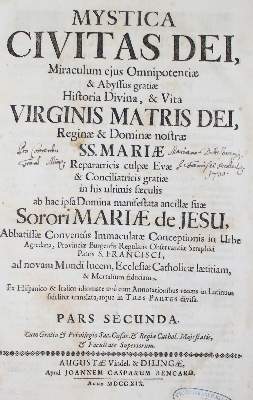 MYSTICA
CIVITAS DEI,
Miraculum ejus Omnipotentiæ
& Abyssus gratiæ
Historia Divina, & Vita
VIRGINIS MATRIS DEI,
Reginæ & Dominæ nostræ
SS. MARIÆ
Reparatricis culpæ Evæ
& Conciliatricis gratiæ
in his ultimis sæculis
ab hac ipsa Domina manifestata ancillæ suæ
Sorori MARIÆ de JESU,
Abbatissæ Conventûs Immaculatæ Conceptionis in Urbe
Agredana, Provinciæ Burgensis Regularis Observantiæ Seraphici
Patris S. FRANCISCI,
ad novam Mundi lucem, Ecclesiæ Catholicæ lætitiam,
& Mortalium fiduciam.
Ex Hispanico & Italico idiomate unà cum Annotationibus recens in Latinum
fideliter translata, atque in TRES PARTES divisa.
PARS SECUNDA.
Cum Gratia & Privilegio Sac. Cæsar. & Regiæ Cathol. Majestatis,
& Facultate Superiorum.
AUGUSTÆ Vindel. & DILINGÆ,
Apud JOANNEM CASPARUM BENCARD.
Anno MDCCXIX.